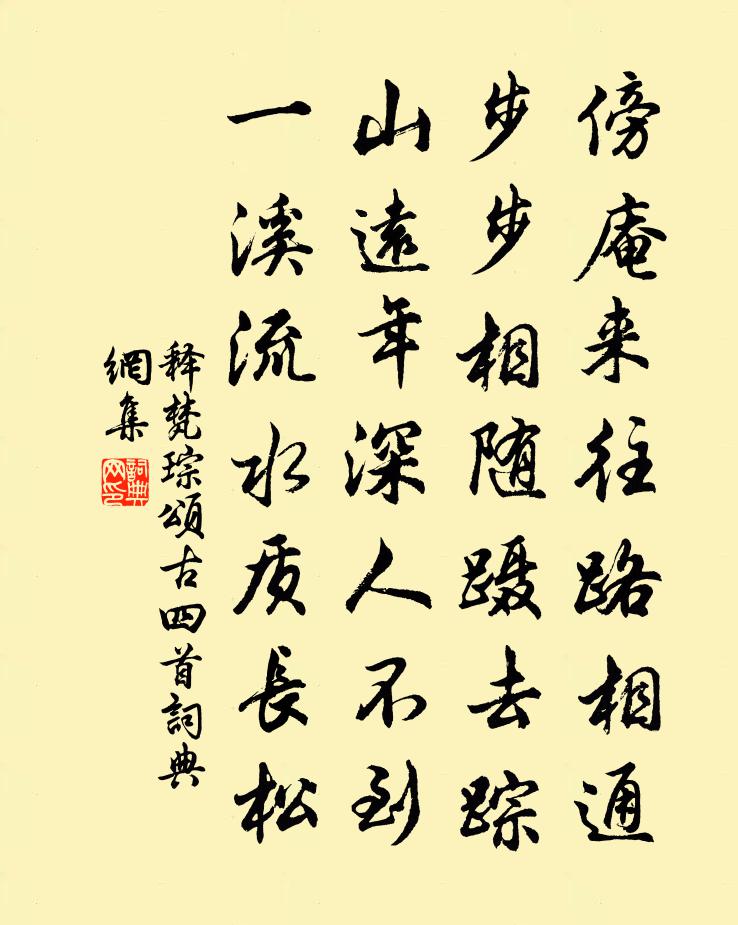 傍庵来往路相通
步步相随蹑去踪
山遠年深人不到
一溪流水质長松
释梵琮頌古四首詞典
網集
詞典
网印